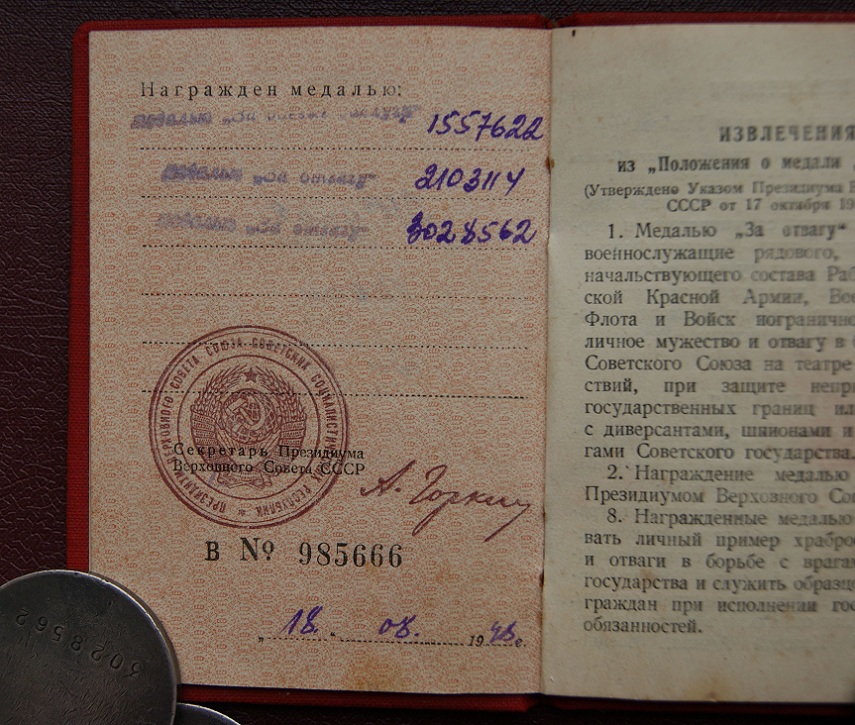 Награжден медалью:
медалью „За боевые заслуги" 1557622
медалью „За отвагу" 2103114
медалью „За отвагу" 3028562
ПРЕЗИДИУМ ВЕРХОВНОГО СОВЕТА СОЮЗА СОВЕТСКИХ СОЦИАЛИСТИЧЕСКИХ РЕСПУБЛИК
Секретарь Президиума
Верховного Совета СССР
А. Горкин
В № 985666
„18." 08. 1948г.
3028562
ИЗВЛЕЧЕНИЯ
из „Положения о медали
(Утверждено Указом Президиума
СССР от 17 октября 19
1. Медалью „За отвагу"
военнослужащие рядового,
начальствующего состава Раб
ской Красной Армии, Вое
Флота и Войск погранично
личное мужество и отвагу в
Советского Союза на театре
ствий, при защите непри
государственных границ ил
с диверсантами, шпионами и
гами Советского государства.
2. Награждение медалью
Президиумом Верховного Со
8. Награжденные медалью
вать личный пример храбро
и отваги в борьбе с врагам
государства и служить образцо
граждан при исполнении гос
обязанностей.